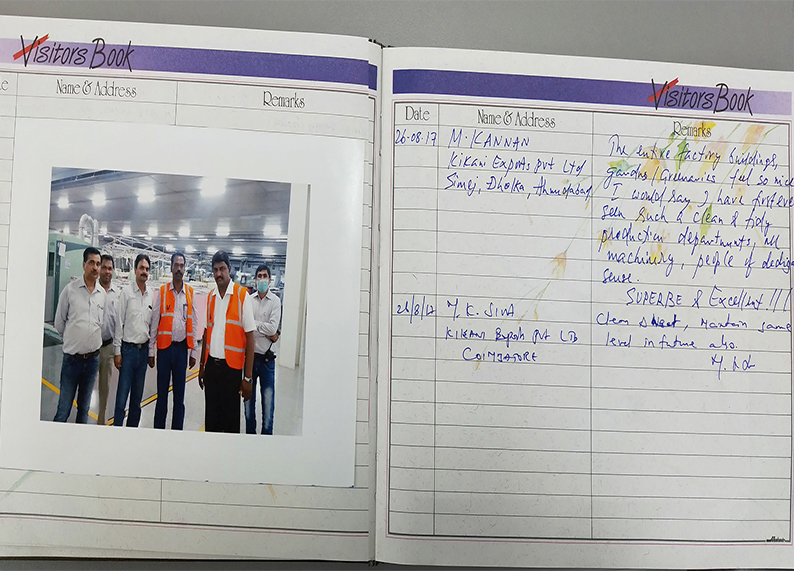 Visitors Book
Name & Address
Remarks
Visitors Book
Date
Name & Address
Remarks
26-08.17
M. KANNAN
Kikani Exports Pvt Ltd
Simej, Dholka, Ahmedabad
The entire factory buildings,
gardns/Greenaries feel so nice
I would say I have first eve
seen such a clean & tidy
production departments, all
machinery, people of dedica
sense.
SUPERBE & Excellent!!!
26/8/17
M. K. SIVA
KIKANI Exports Pvt LTD
COIMBATORE
Clean &, Maintain same
level in future also.